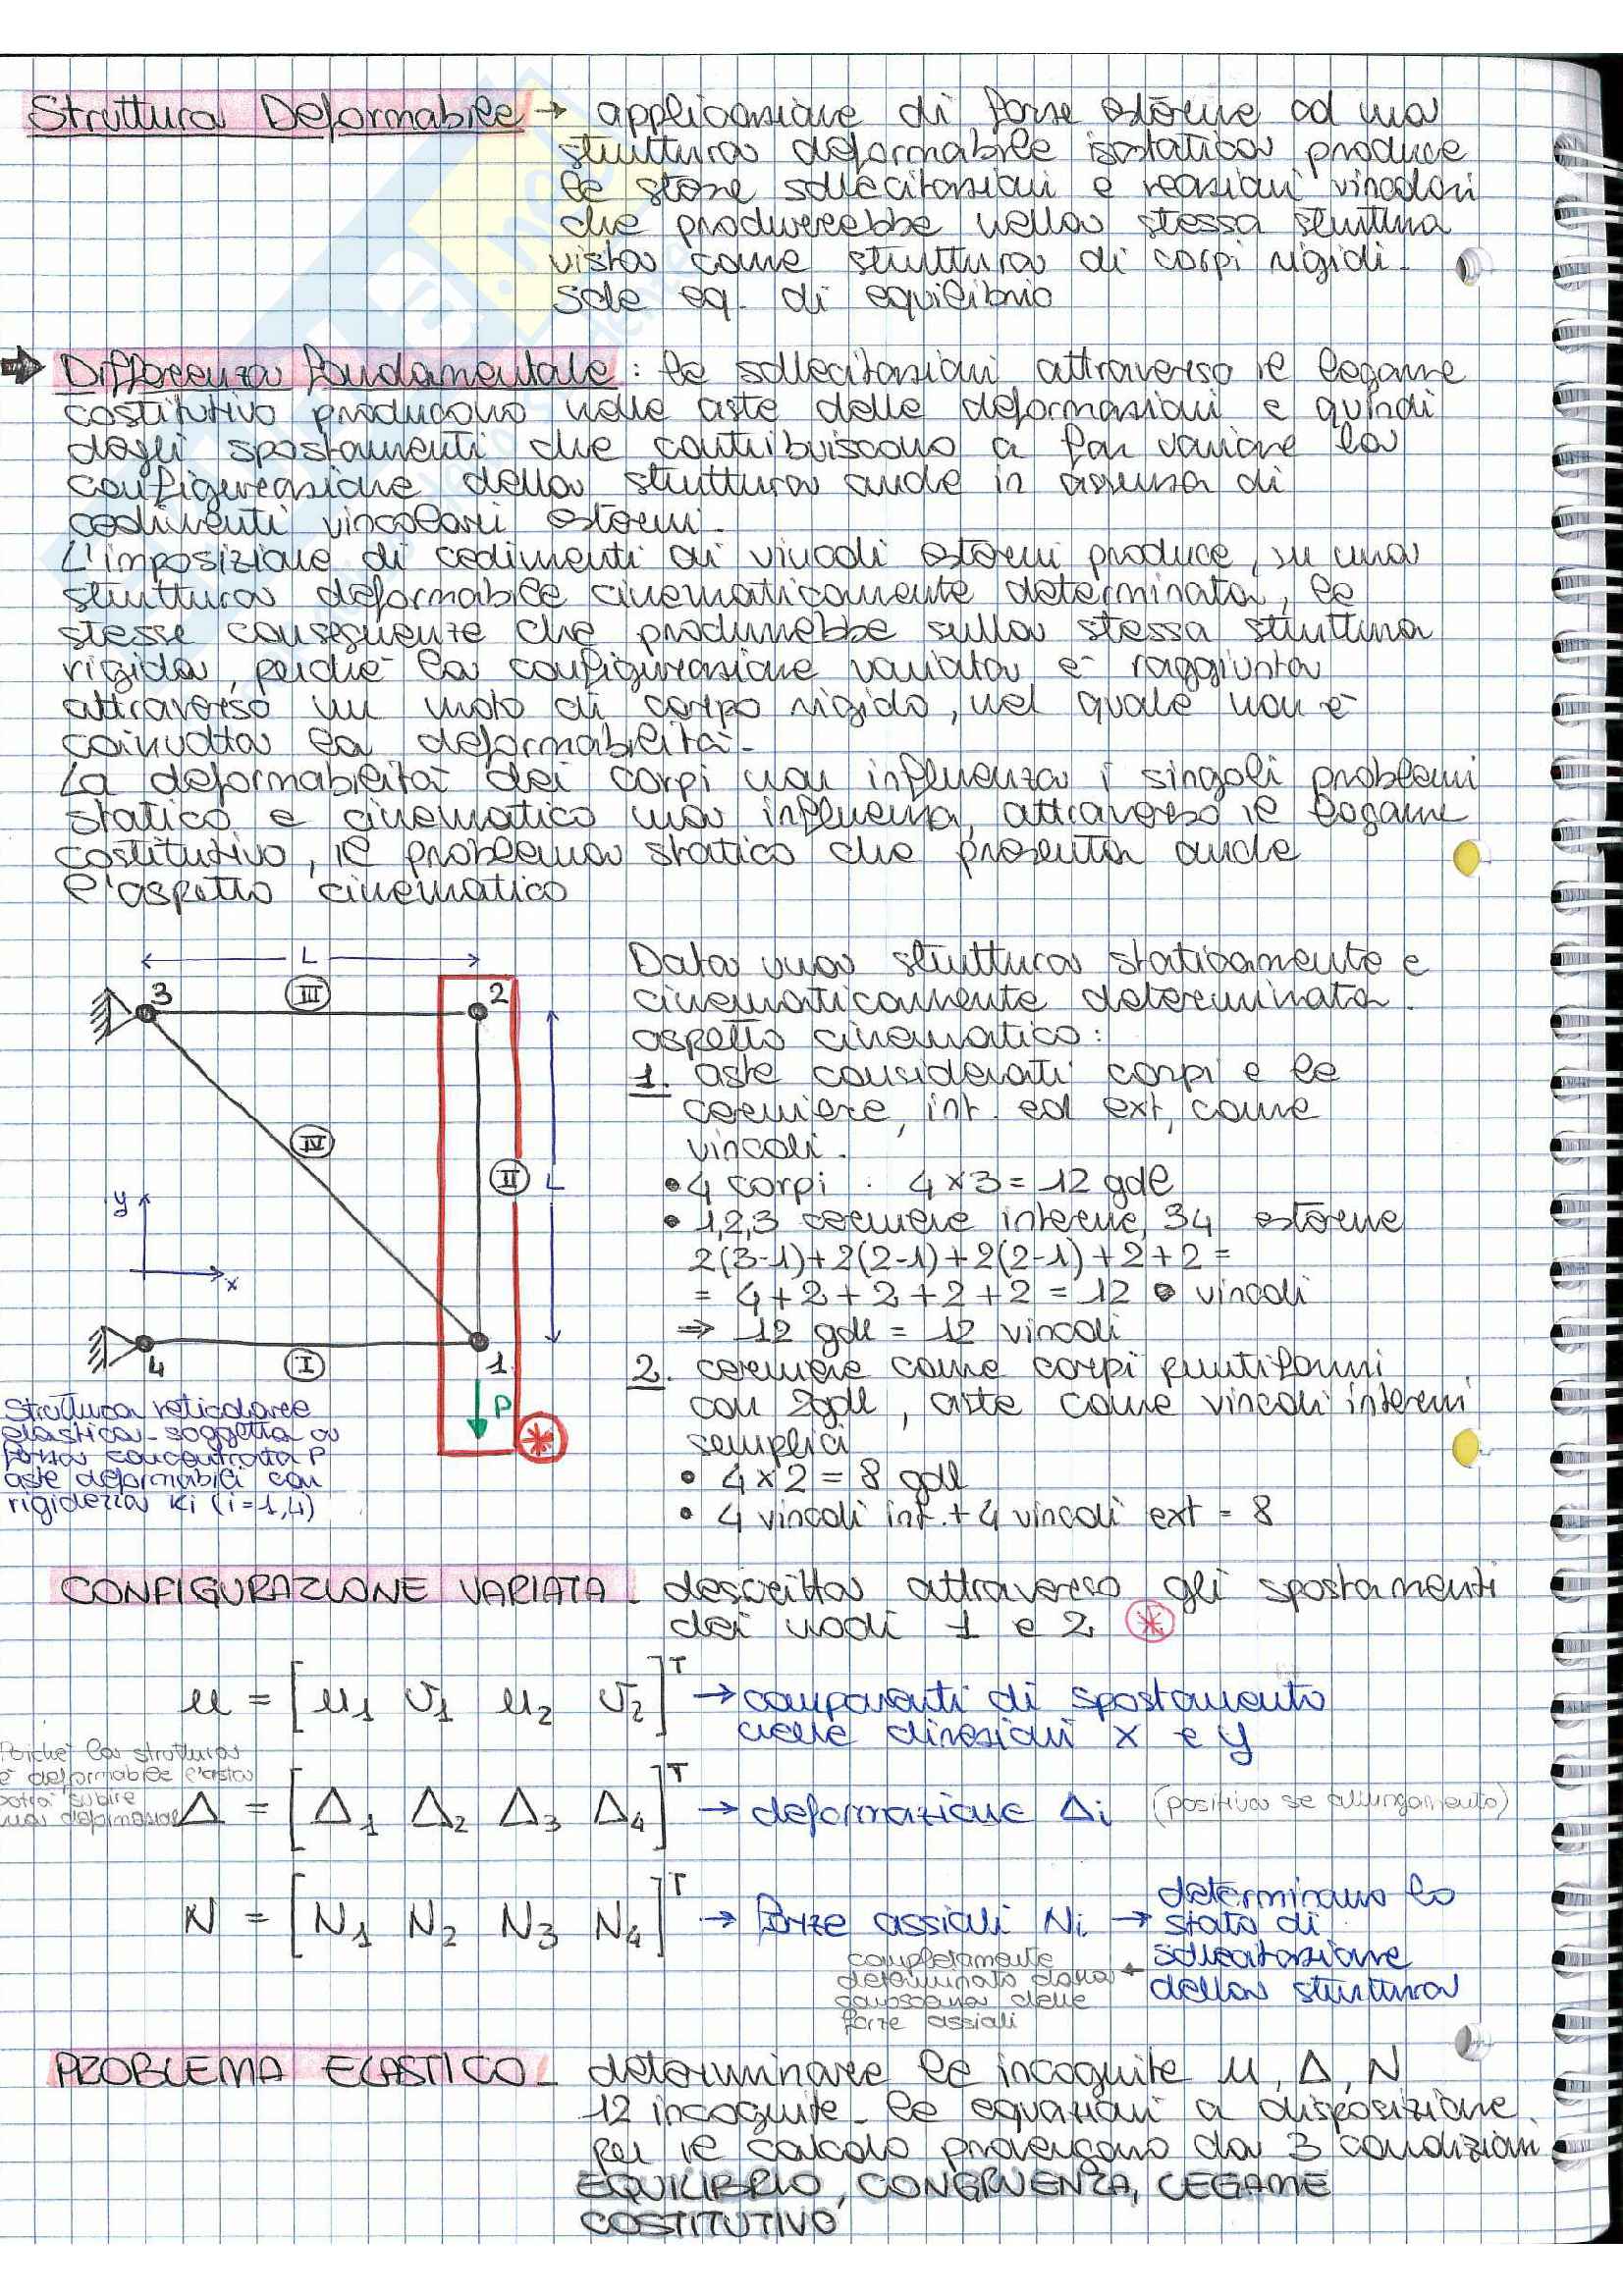 Struttura Deformabile → applicazione di forze esterne ad una
struttura deformabile isostatica produce
le stesse sollecitazioni e reazioni vincolari
che produrrebbe nella stessa struttura
vista come struttura di corpi rigidi.
Sole eq. di equilibrio
Differenza fondamentale: le sollecitazioni attraverso il legame
costitutivo producono nelle aste delle deformazioni e quindi
degli spostamenti che contribuiscono a far variare la
configurazione della struttura anche in assenza di
cedimenti vincolari esterni.
L'imposizione di cedimenti ai vincoli esterni produce, su una
struttura deformabile cinematicamente determinata, le
stesse conseguenze che produrrebbe sulla stessa struttura
rigida, perché la configurazione variata è raggiunta
attraverso un moto di corpo rigido, nel quale non è
coinvolta la deformabilità.
La deformabilità dei corpi non influenza i singoli problemi
statico e cinematico ma influenza, attraverso il legame
costitutivo, il problema statico che presenta anche
l'aspetto cinematico
L
3
III
2
IV
II
L
y
x
4
I
1
P
Struttura reticolare
elastica soggetta a
forza concentrata P
aste deformabili con
rigidezza Ki (i=1,4)
Data una struttura staticamente e
cinematicamente determinata.
aspetto cinematico:
1. aste considerati corpi e le
cerniere, int. ed ext, come
vincoli.
• 4 corpi : 4x3 = 12 gdl
• 1,2,3 cerniere interne, 34 esterne
2(3-1)+2(2-1)+2(2-1)+2+2 =
= 4+2+2+2+2 = 12 vincoli
⇒ 12 gdl = 12 vincoli
2. cerniere come corpi puntiformi
con 2gdl, aste come vincoli interni
semplici
• 4x2 = 8 gdl
• 4 vincoli int. + 4 vincoli ext = 8
CONFIGURAZIONE VARIATA. descritta attraverso gli spostamenti
dei nodi 1 e 2 *
u = [u1 v1 u2 v2]^T → componenti di spostamento
nelle direzioni x e y
Poiché la struttura
è deformabile l'asta
potrà subire
una deformazione
Δ = [Δ1 Δ2 Δ3 Δ4]^T → deformazione Δi (positiva se allungamento)
N = [N1 N2 N3 N4]^T → Forze assiali Ni → determinano lo
stato di
sollecitazione
della struttura
completamente
determinato dalla
conoscenza delle
forze assiali
PROBLEMA ELASTICO. determinare le incognite u, Δ, N
12 incognite. le equazioni a disposizione
per il calcolo provengono da 3 condizioni
EQUILIBRIO, CONGRUENZA, LEGAME
COSTITUTIVO